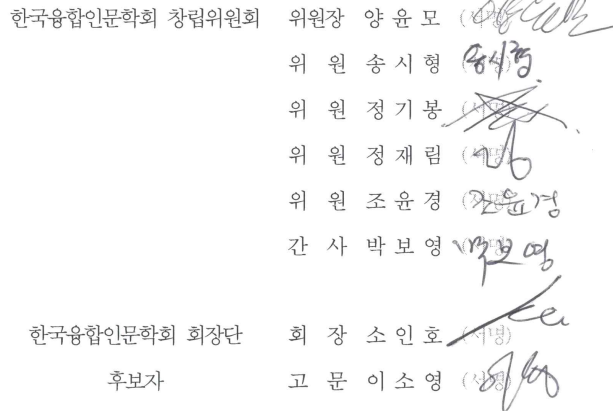 한국융합인문학회 창립위원회 위원장 양윤모 (서명)
위 원 송시형 (서명) 송시형
위 원 정기봉 (서명)
위 원 정재림 (서명)
위 원 조윤경 (서명) 조윤경
간 사 박보영 (서명) 박보영
한국융합인문학회 회장단 회 장 소인호 (서명)
후보자 고 문 이소영 (서명)